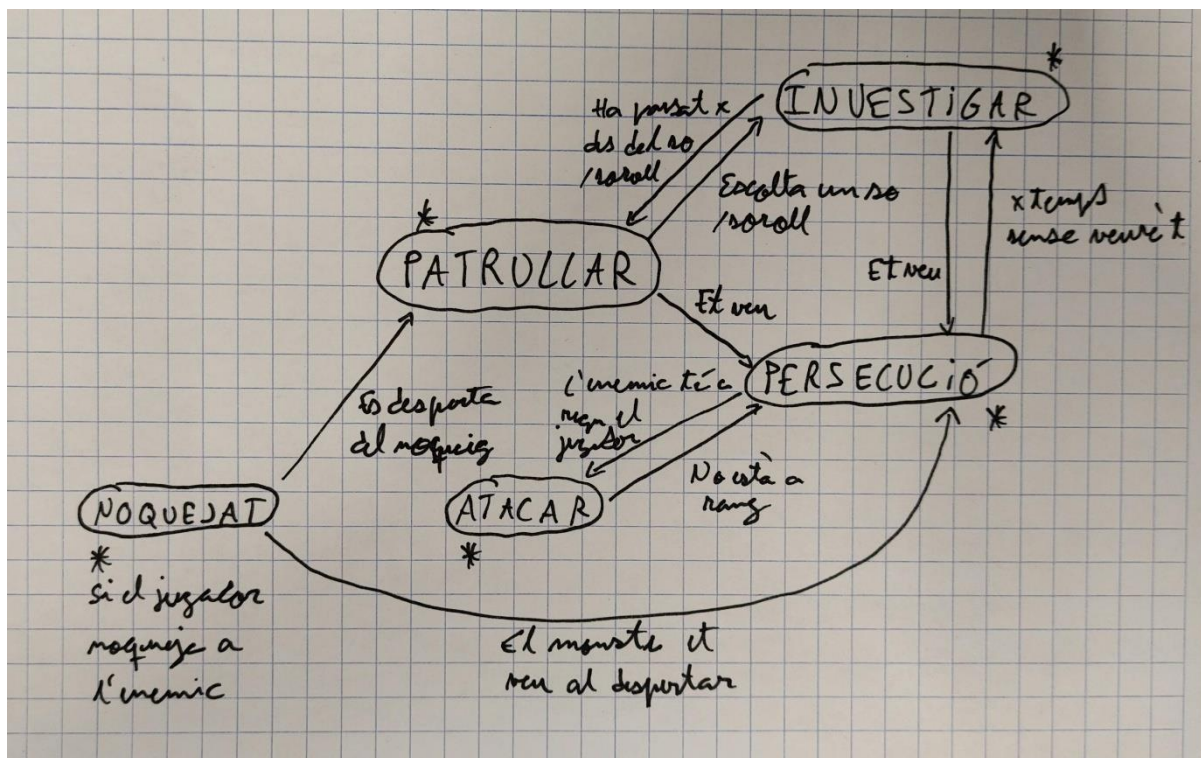 *
INVESTIGAR
Ha passat x
des del so
/soroll
Escolta un so
/soroll
x temps
sense veure't
*
PATRULLAR
Et veu
Et veu
PERSECUCIÓ
*
L'enemic té a
rang el
jugador
Es desperta
del noqueig
No està a
rang
NOQUEJAT
*
Si el jugador
noqueja a
l'enemic
ATACAR
*
El monstre et
veu al despertar